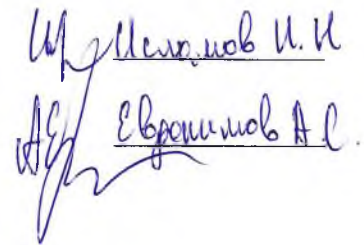 Исламов И. И
Евдокимов А. С.